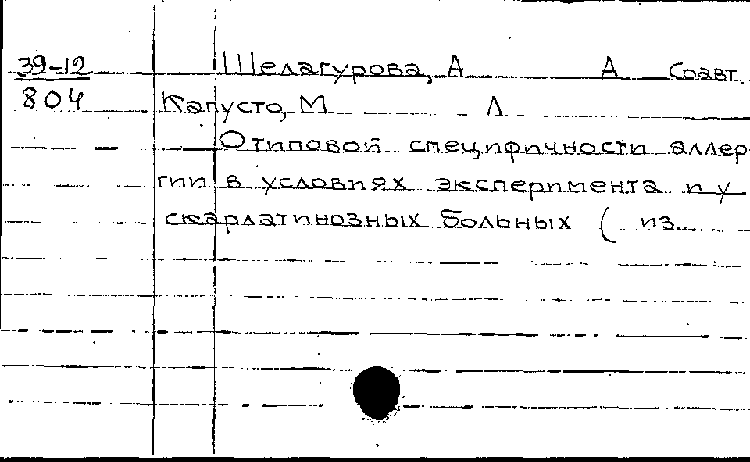 39-12 Шелагурова, А А Соавт.
804 Капусто, М Л
О типовой специфичности аллер-
гии в условиях эксперимента и у
скарлатинозных больных ( из